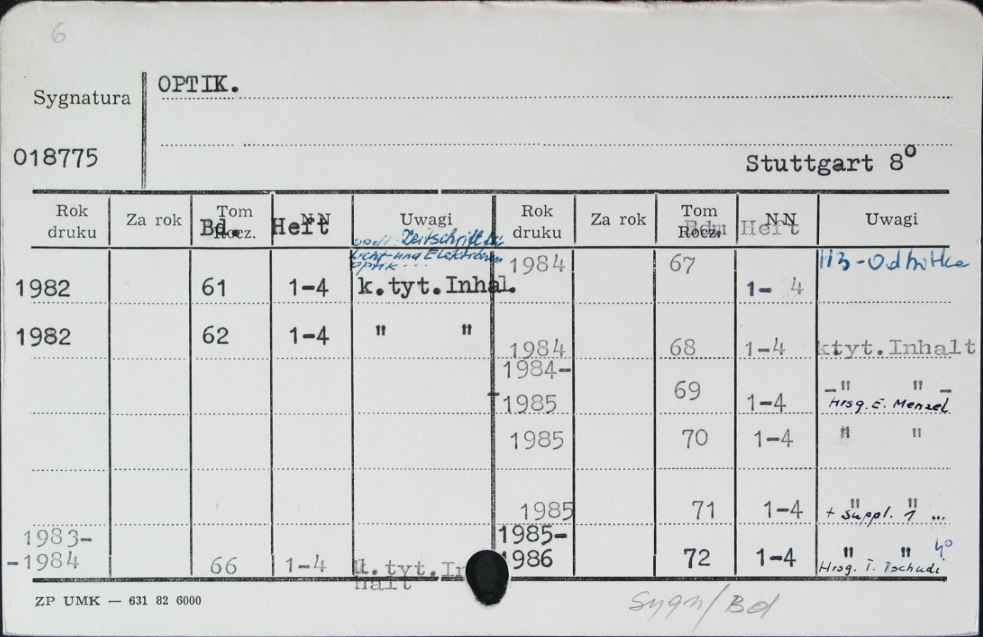 6
Sygnatura OPTIK.
018775 Stuttgart 8°
Rok druku Za rok Tom Rocz. Bd. NN Heft Uwagi Rok druku Za rok Tom Rocz. Bd. NN Heft Uwagi
Zeitschrift für
Licht- und Elektronen
optik...
1982 61 1-4 k.tyt.Inhal.
1982 62 1-4 " "
1983-
-1984 66 1-4 k.tyt.In
halt
1984 67 1-4 1i3-Odbitka
1984 68 1-4 ktyt.Inhalt
1984-
-1985 69 1-4 -" " -
Hrsg. E. Menzel
1985 70 1-4 " "
1985 71 1-4 " "
+ Suppl. 1 ...
1985-
1986 72 1-4 " " 4°
Hrsg. T. Tschudi
ZP UMK — 631 82 6000
Sygn/Bd